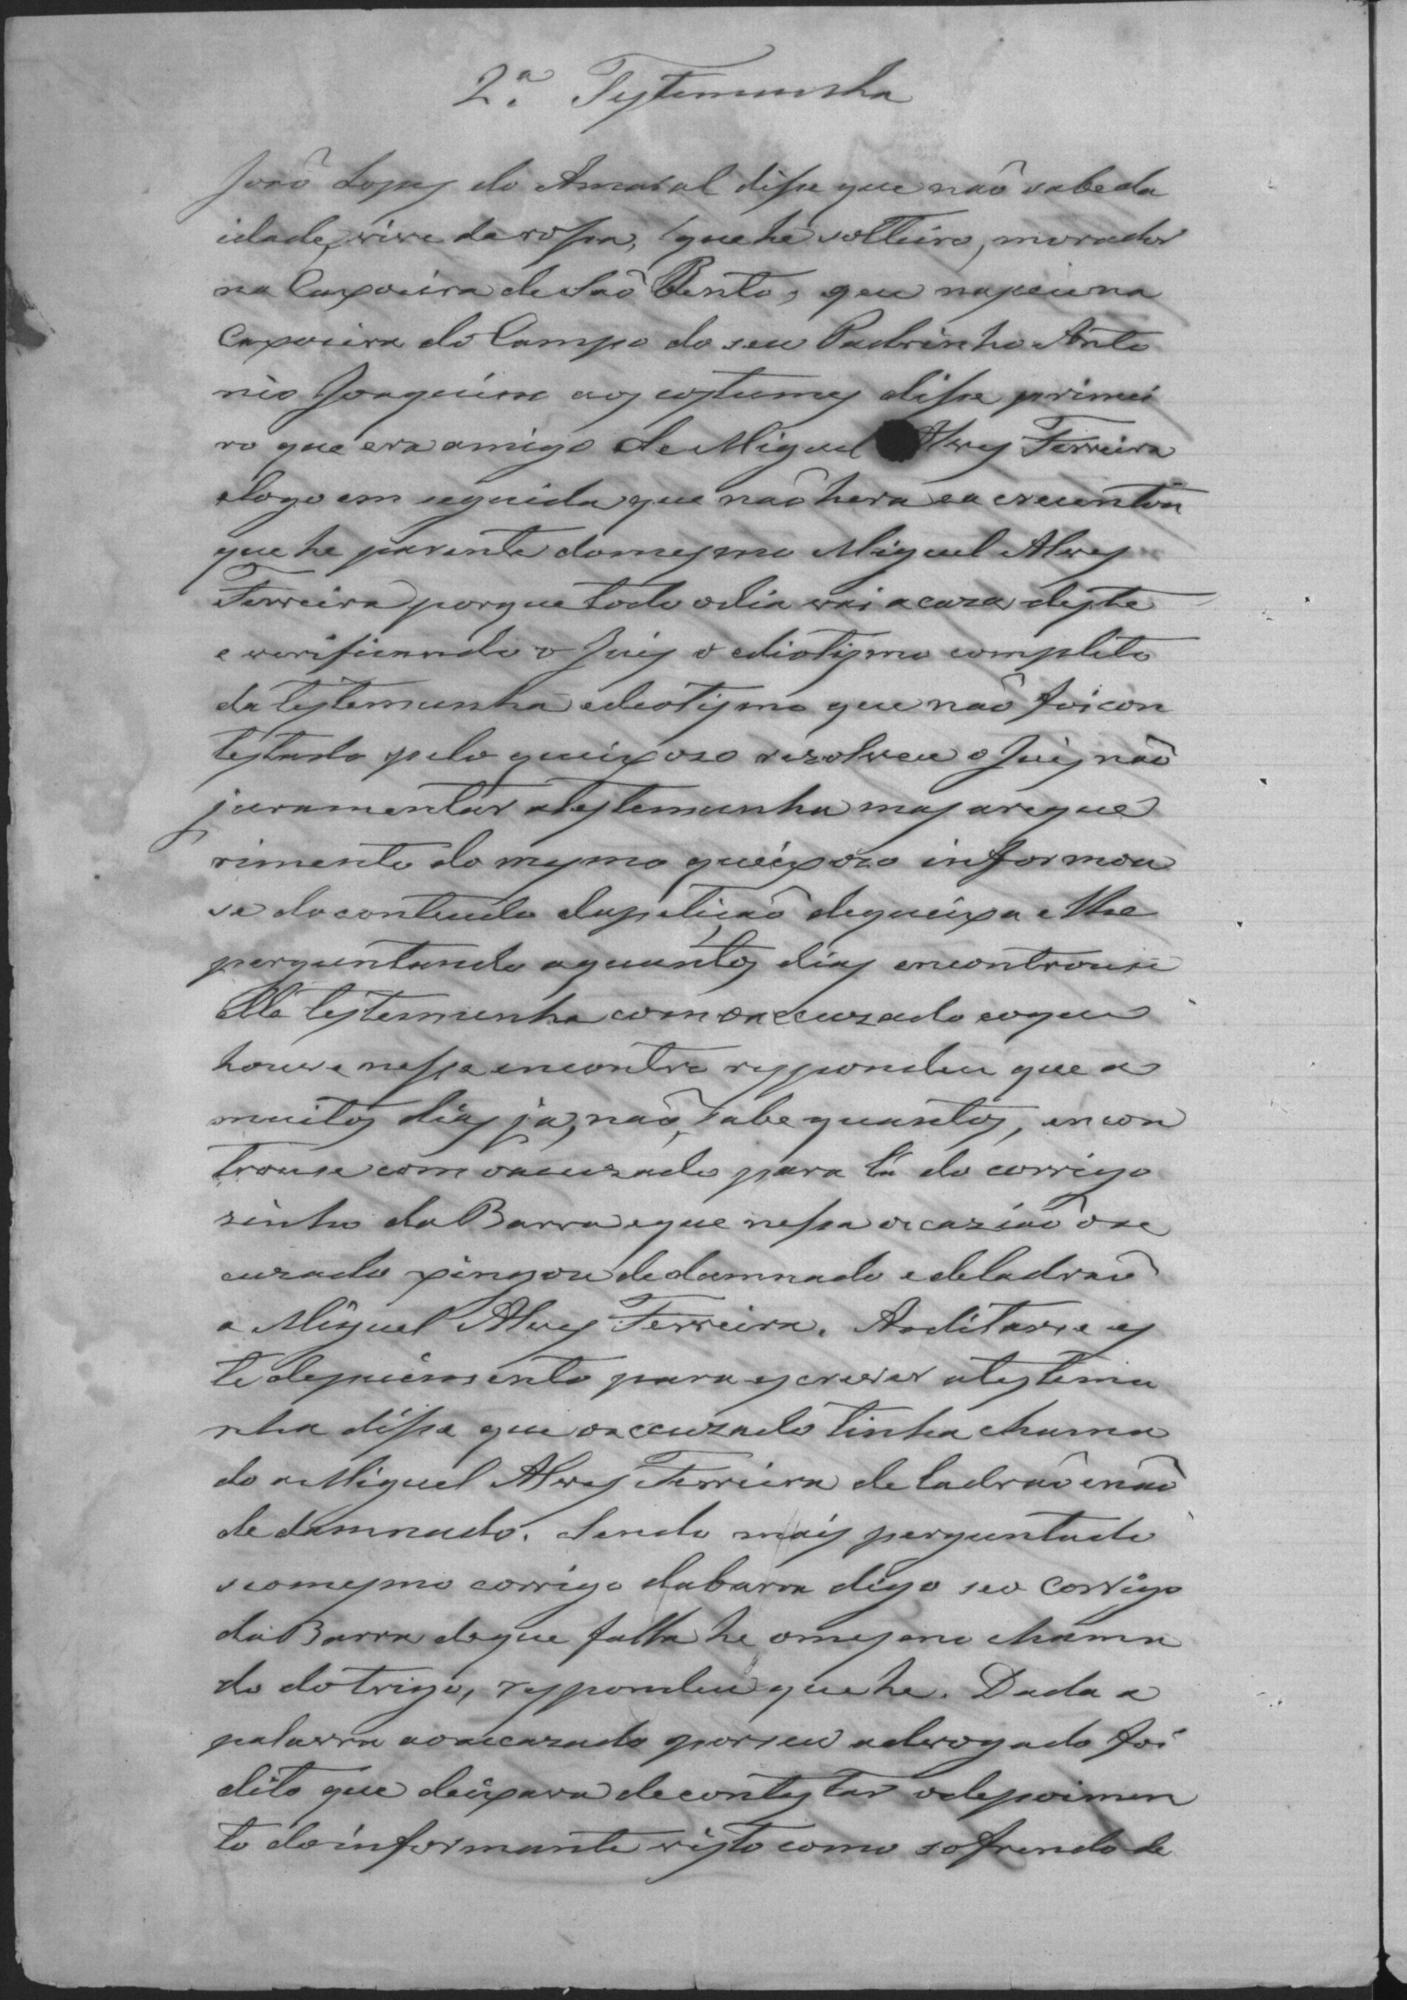 2.ª Testemunha
João Lopes do Amaral disse que não sabe da
idade, vive da rossa, que hé solteiro, morador
na Capoeira de São Bento, que nasceu na
Capoeira do Campo do seu Padrinho Anto
nio Joaquim aos costumes disse primei
ro que era amigo de Miguel Alves Ferreira
e logo em seguida que não hera e acrecentou
que he parente do mesmo Miguel Alves
Ferreira porque todo o dia vai a caza deste
e verificando o Juis o ediotismo completo
da testemunha edeotismo que não foi con
testado pelo queixoso rezolveu o Juis não
juramentar a testemunha mas a reque
rimento do mesmo queixozo informou
se do contendo da petição de queixa e lhe
perguntando a quantos dias encontrouse
elle testemunha com o accuzado e o que
houve nesse encontro respondeu que a
muitos dias já, não sabe quantos, encon
trouse com o acuzado para lá do corrigo
zinho da Barra e que nessa ocazião o ac
cuzado xingou de damnado e de ladrão
a Miguel Alves Ferreira. Ao ditarse es
te depuimento para escrever a testemu
nha disse que o accuzado tinha chama
do a Miguel Alves Ferreira de ladrão e não
de damnado. Sendo mais perguntado
se o mesmo corrigo da barra digo se o Corrigo
da Barra de que falla he o mesmo chama
do do trigo, respondeu que he. Dada a
palavra ao accuzado por seu advogado foi
dito que deixava de contestar o depoimen
to do informante visto como sofrendo de